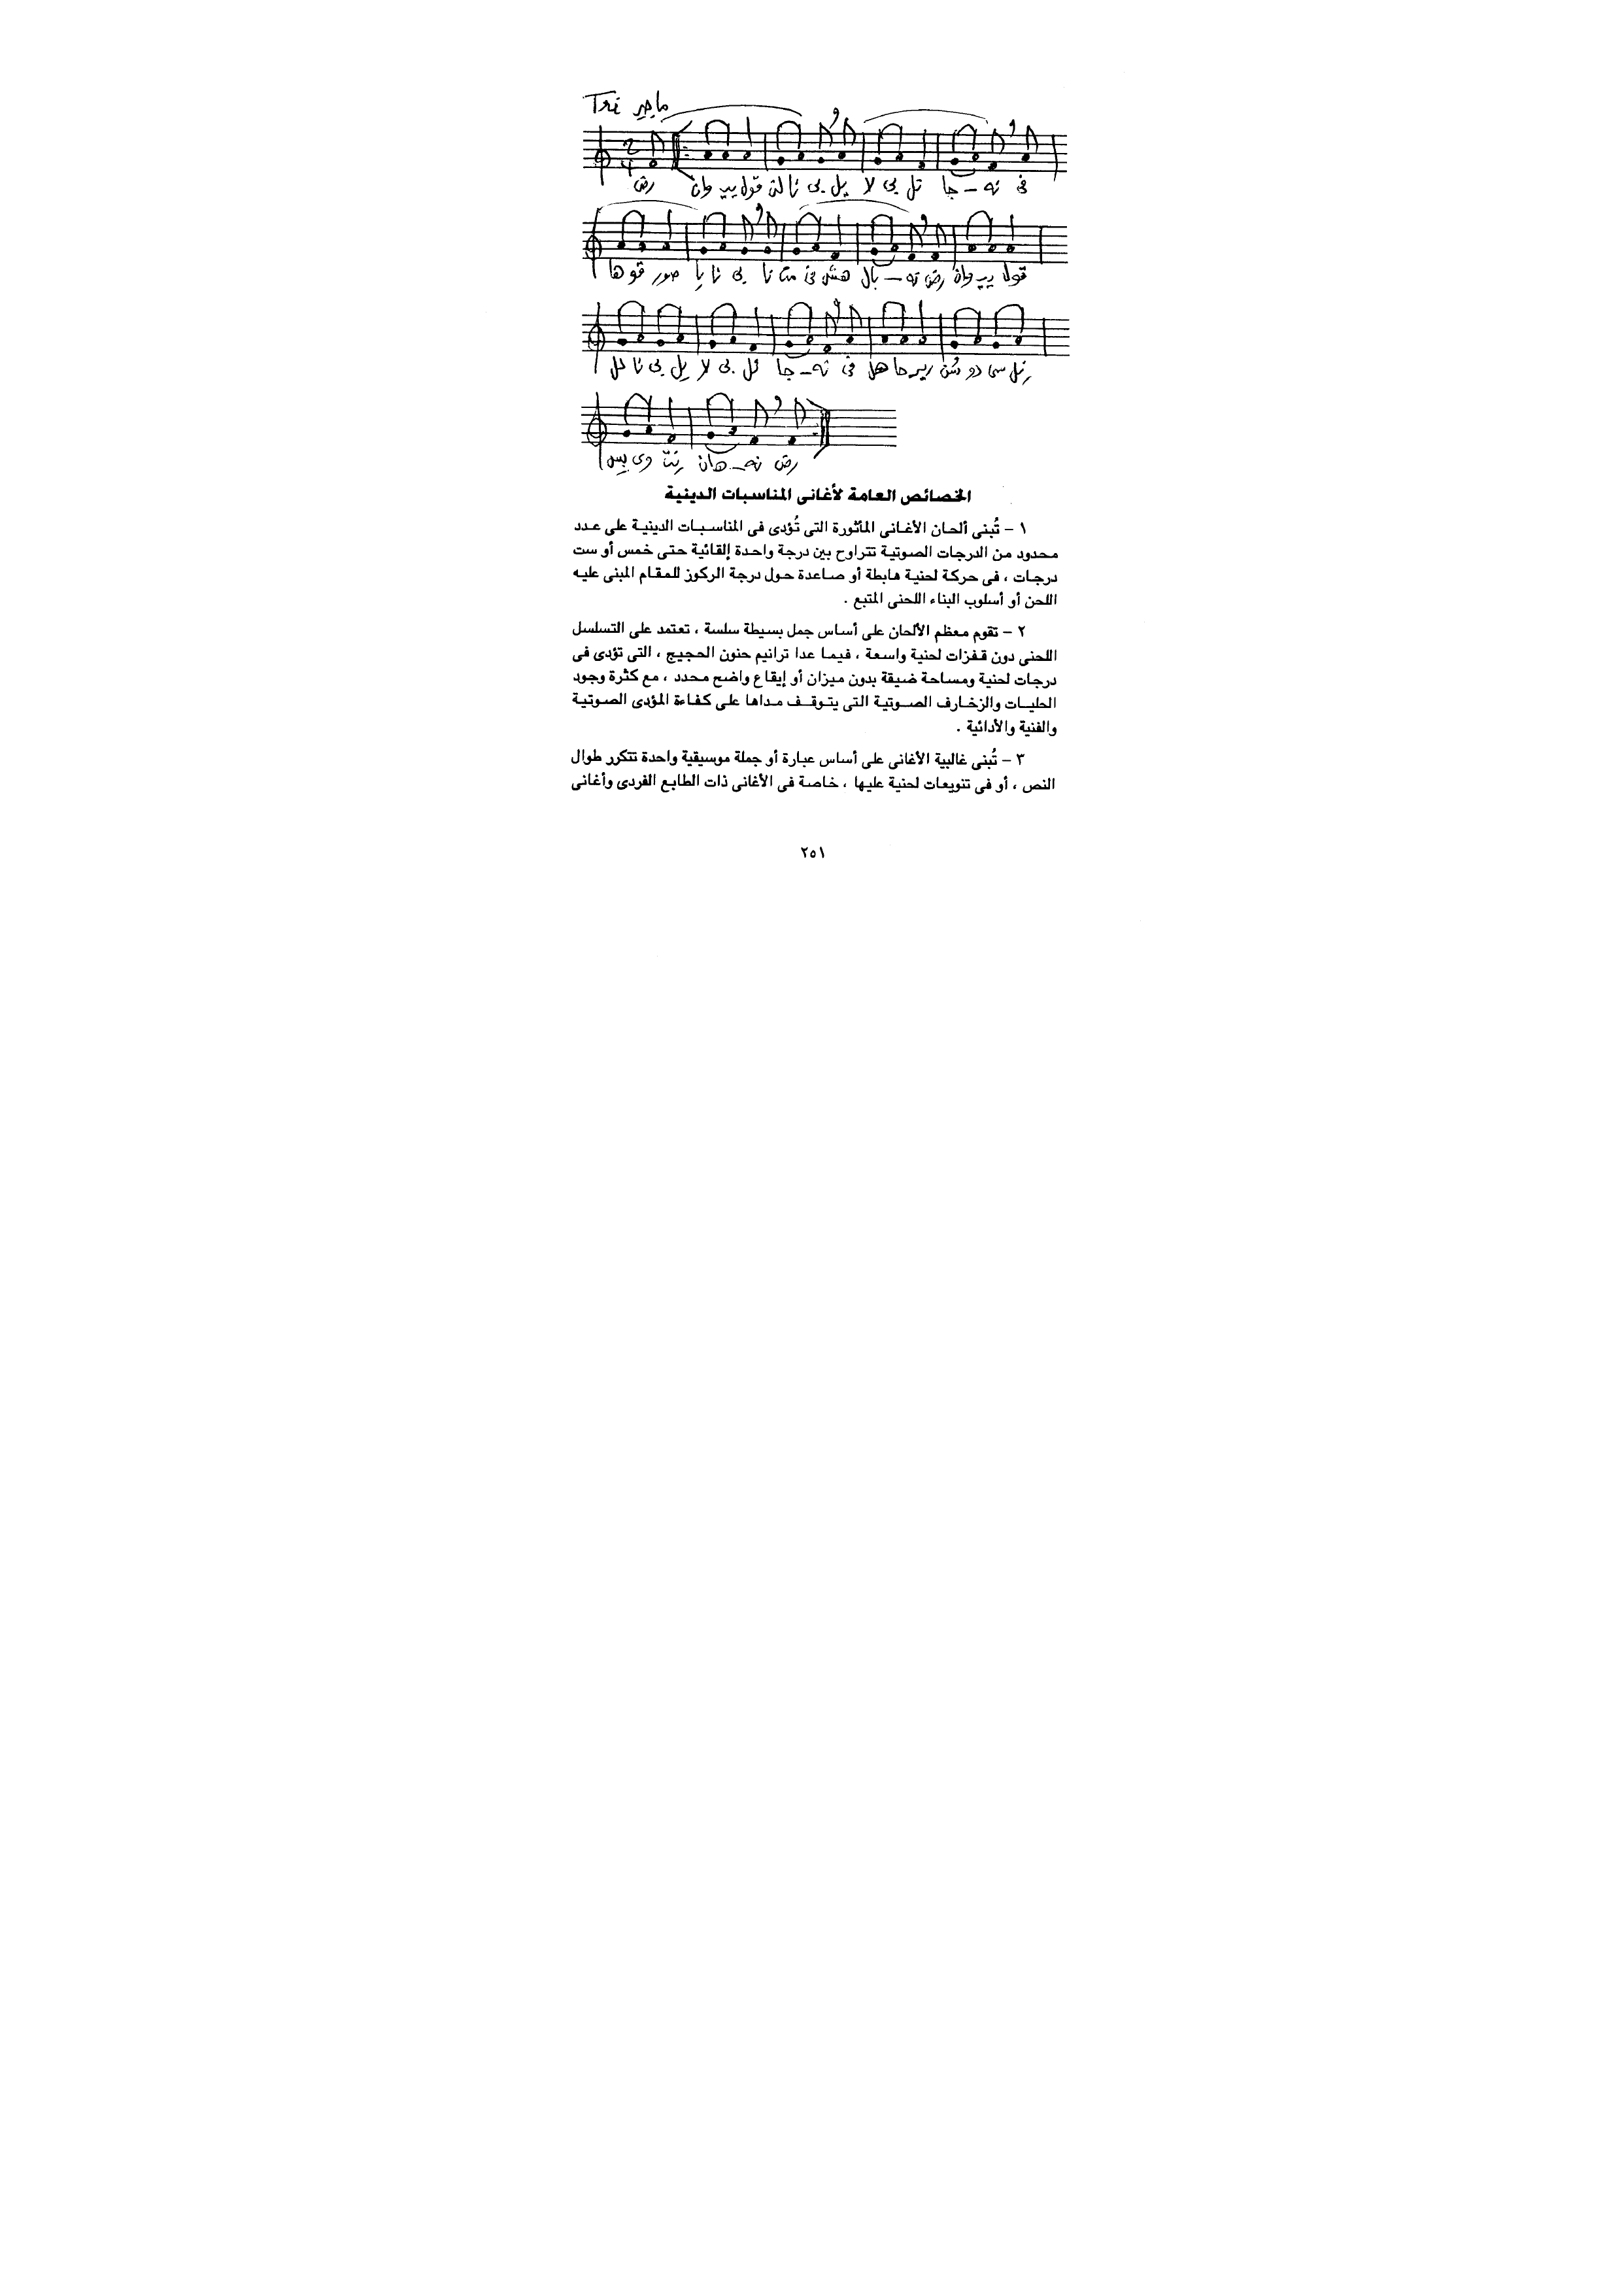 Tri ماجير
رض وان ييب قولا لتن نا بى يل لا بى تل جا - نه فى
ها قو صور يا نا بى نا فى هش بال - نه رض وان ييب قولا
لل نا بى يل لا بى تل جا - نه فى هل حا رير دو سى
وى هان - نه رض
الخصائص العامة لأغانى المناسبات الدينية
١ – تُبنى ألحان الأغانى المأثورة التى تُؤدى فى المناسبات الدينية على عدد
محدود من الدرجات الصوتية تتراوح بين درجة واحدة إلقائية حتى خمس أو ست
درجات ، فى حركة لحنية هابطة أو صاعدة حول درجة الركوز للمقام المبنى عليه
اللحن أو أسلوب البناء اللحنى المتبع .
٢ – تقوم معظم الألحان على أساس جمل بسيطة سلسة ، تعتمد على التسلسل
اللحنى دون قفزات لحنية واسعة ، فيما عدا ترانيم حنون الحجيج ، التى تؤدى فى
درجات لحنية ومساحة ضيقة بدون ميزان أو إيقاع واضح محدد ، مع كثرة وجود
الحليات والزخارف الصوتية التى يتوقف مداها على كفاءة المؤدى الصوتية
والفنية والأدائية .
٣ – تُبنى غالبية الأغانى على أساس عبارة أو جملة موسيقية واحدة تتكرر طوال
النص ، أو فى تنويعات لحنية عليها ، خاصة فى الأغانى ذات الطابع الفردى وأغانى
٢٥١